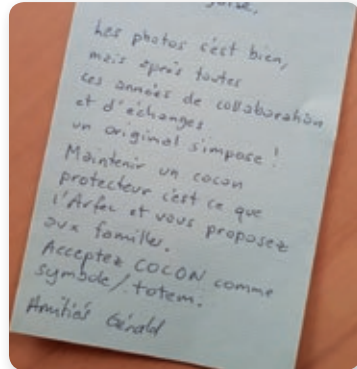 Les photos c'est bien,
mais après toutes
ces années de collaboration
et d'échanges
un original s'impose !
Maintenir un cocon
protecteur c'est ce que
l'Arfec et vous proposez
aux familles.
Acceptez COCON comme
symbole / totem.
Amitiés Gérald